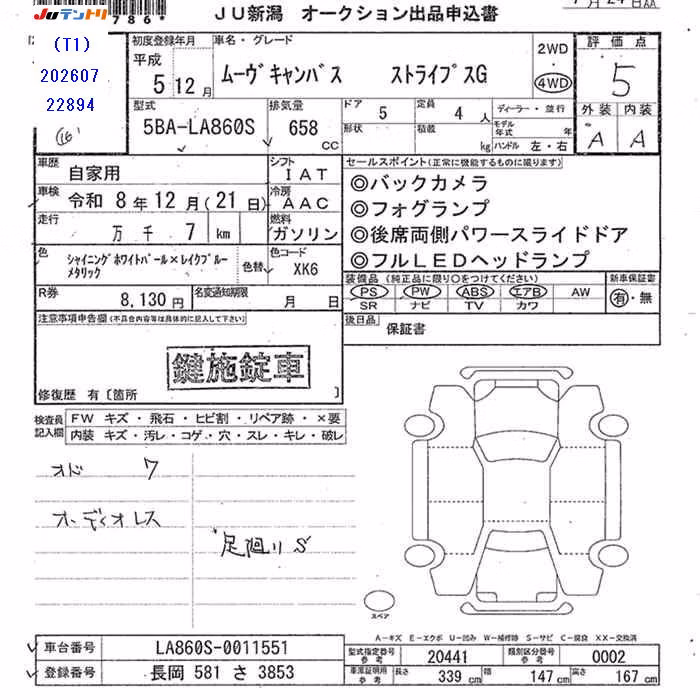 JUテントリ
786*
JU新潟 オークション出品申込書
(T1)
202607
22894
(16)
初度登録年月
平成
5 12 月
車名・グレード
ムーヴキャンバス ストライプスG
2WD
・
4WD
評価点
5
外装 内装
A A
型式
5BA-LA860S
排気量
658
CC
ドア 5
形状
定員 4 人
積載 kg
ディーラー・並行
モデル年式 年
ハンドル 左・右
車歴 自家用
シフト IAT
車検 令和 8 年 12 月 ( 21 日)
冷房 AAC
走行 万 千 7 km
燃料 ガソリン
色 シャイニングホワイトパール×レイクブルー
メタリック
色替
色コード
XK6
R券 8,130 円
名変通知期限 月 日
セールスポイント(正常に機能するものに限ります)
◎バックカメラ
◎フォグランプ
◎後席両側パワースライドドア
◎フルLEDヘッドランプ
装備品 (純正品に限り○をつけてください)
PS PW ABS エアB AW
SR ナビ TV カワ
新車保証書
有・無
後日品 保証書
注意事項申告欄(不具合内容等は具体的に記入して下さい)
鍵施錠車
修復歴 有〔箇所 〕
検査員記入欄
FW キズ・飛石・ヒビ割・リペア跡・×要
内装 キズ・汚レ・コゲ・穴・スレ・キレ・破レ
オド 7
オーディオレス
足廻りS
スペア
A-キズ E-エクボ U-凹み W-補修跡 S-サビ C-腐食 XX-交換済
車台番号 LA860S-0011551
登録番号 長岡 581 さ 3853
型式指定番号 参考 20441
類別区分番号 参考 0002
車庫証明用 参考 長さ 339 cm 幅 147 cm 高さ 167 cm